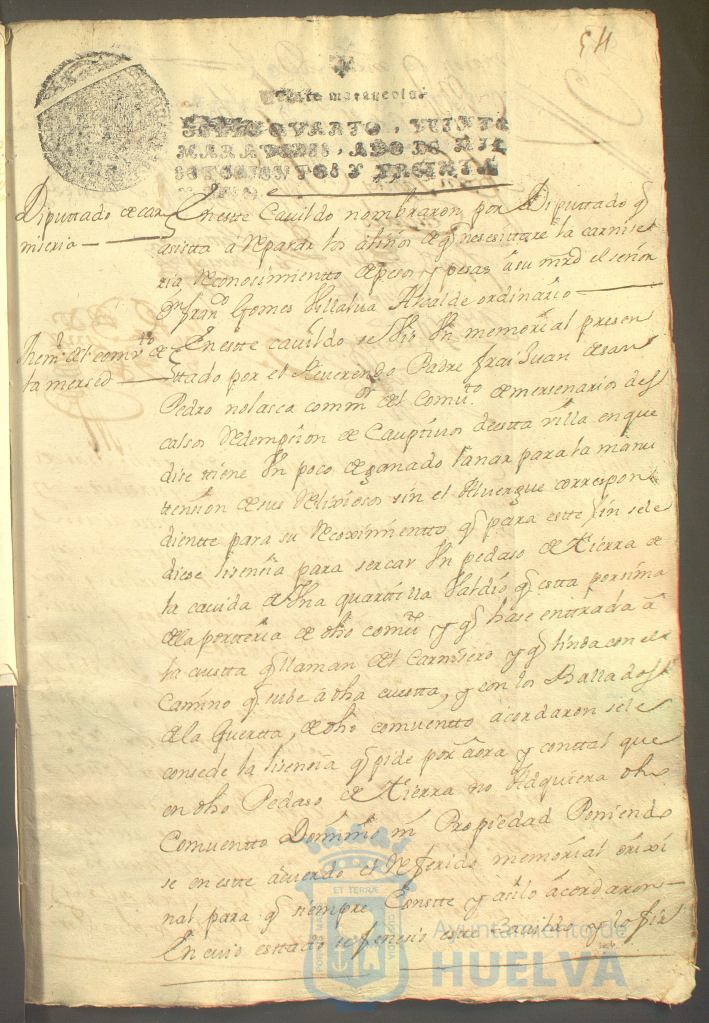 54
Veinte maravedis
SELLO QVARTO, VEINTE
MARAVEDIS, AÑO DE MIL
SETECIENTOS Y TREINTA
Diputtado de car
niseria
En este Cavildo nombraron por Diputtado q̃
asista á Reparar los aliños de q̃ nesesittare la carnise
ria Reconosimientto de pesos y pesas á su mrd el señor
Dn. franco. Gomes Villalva Alcalde ordinario
Mem.l del comvto. de
la mersed
En este cavildo se vio Un memorial presen
ttado por el Reverendo Padre frai Juan de san
Pedro nolasco commor. del Comvto. de mersenarios des
calsos Redempcion de Cauptivos de esta villa en que
dise ttiene Un poco de ganado lanar para la manu
tension de sus Relixiosos sin el Alvergue correspon
dientte para su Recoximientto q̃ para este fin se le
diese lisensia para sercar Un pedaso de tierra de
la cavida de Una quarttilla Valdio q̃ esta proxima
a la portteria de dho comvto y q̃ hase enttrada á
la cuesta q̃ llaman del Carnisero y q̃ linda con el
Camino q̃ sube á dha cuesta, y con los Ballados
de la Guertta, de dho comventto acordaron se le
consede la lisensia q̃ pide por aora y con ttal que
en dho Pedaso de tierra no Adquiera dho
Comventto Dominio ni Propiedad Poniendo
se en este acuerdo el Referido memorial orixi
nal para q̃ siempre Conste y asi lo acordaron
En cuio esttado se fenesio este Cavildo y lo fir
ET TERRA
Ayuntamiento de
HUELVA